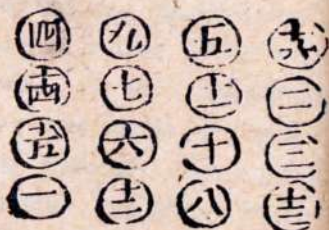 四 九 五 十六
十四 七 十一 二
十五 六 十 三
一 十二 八 十三